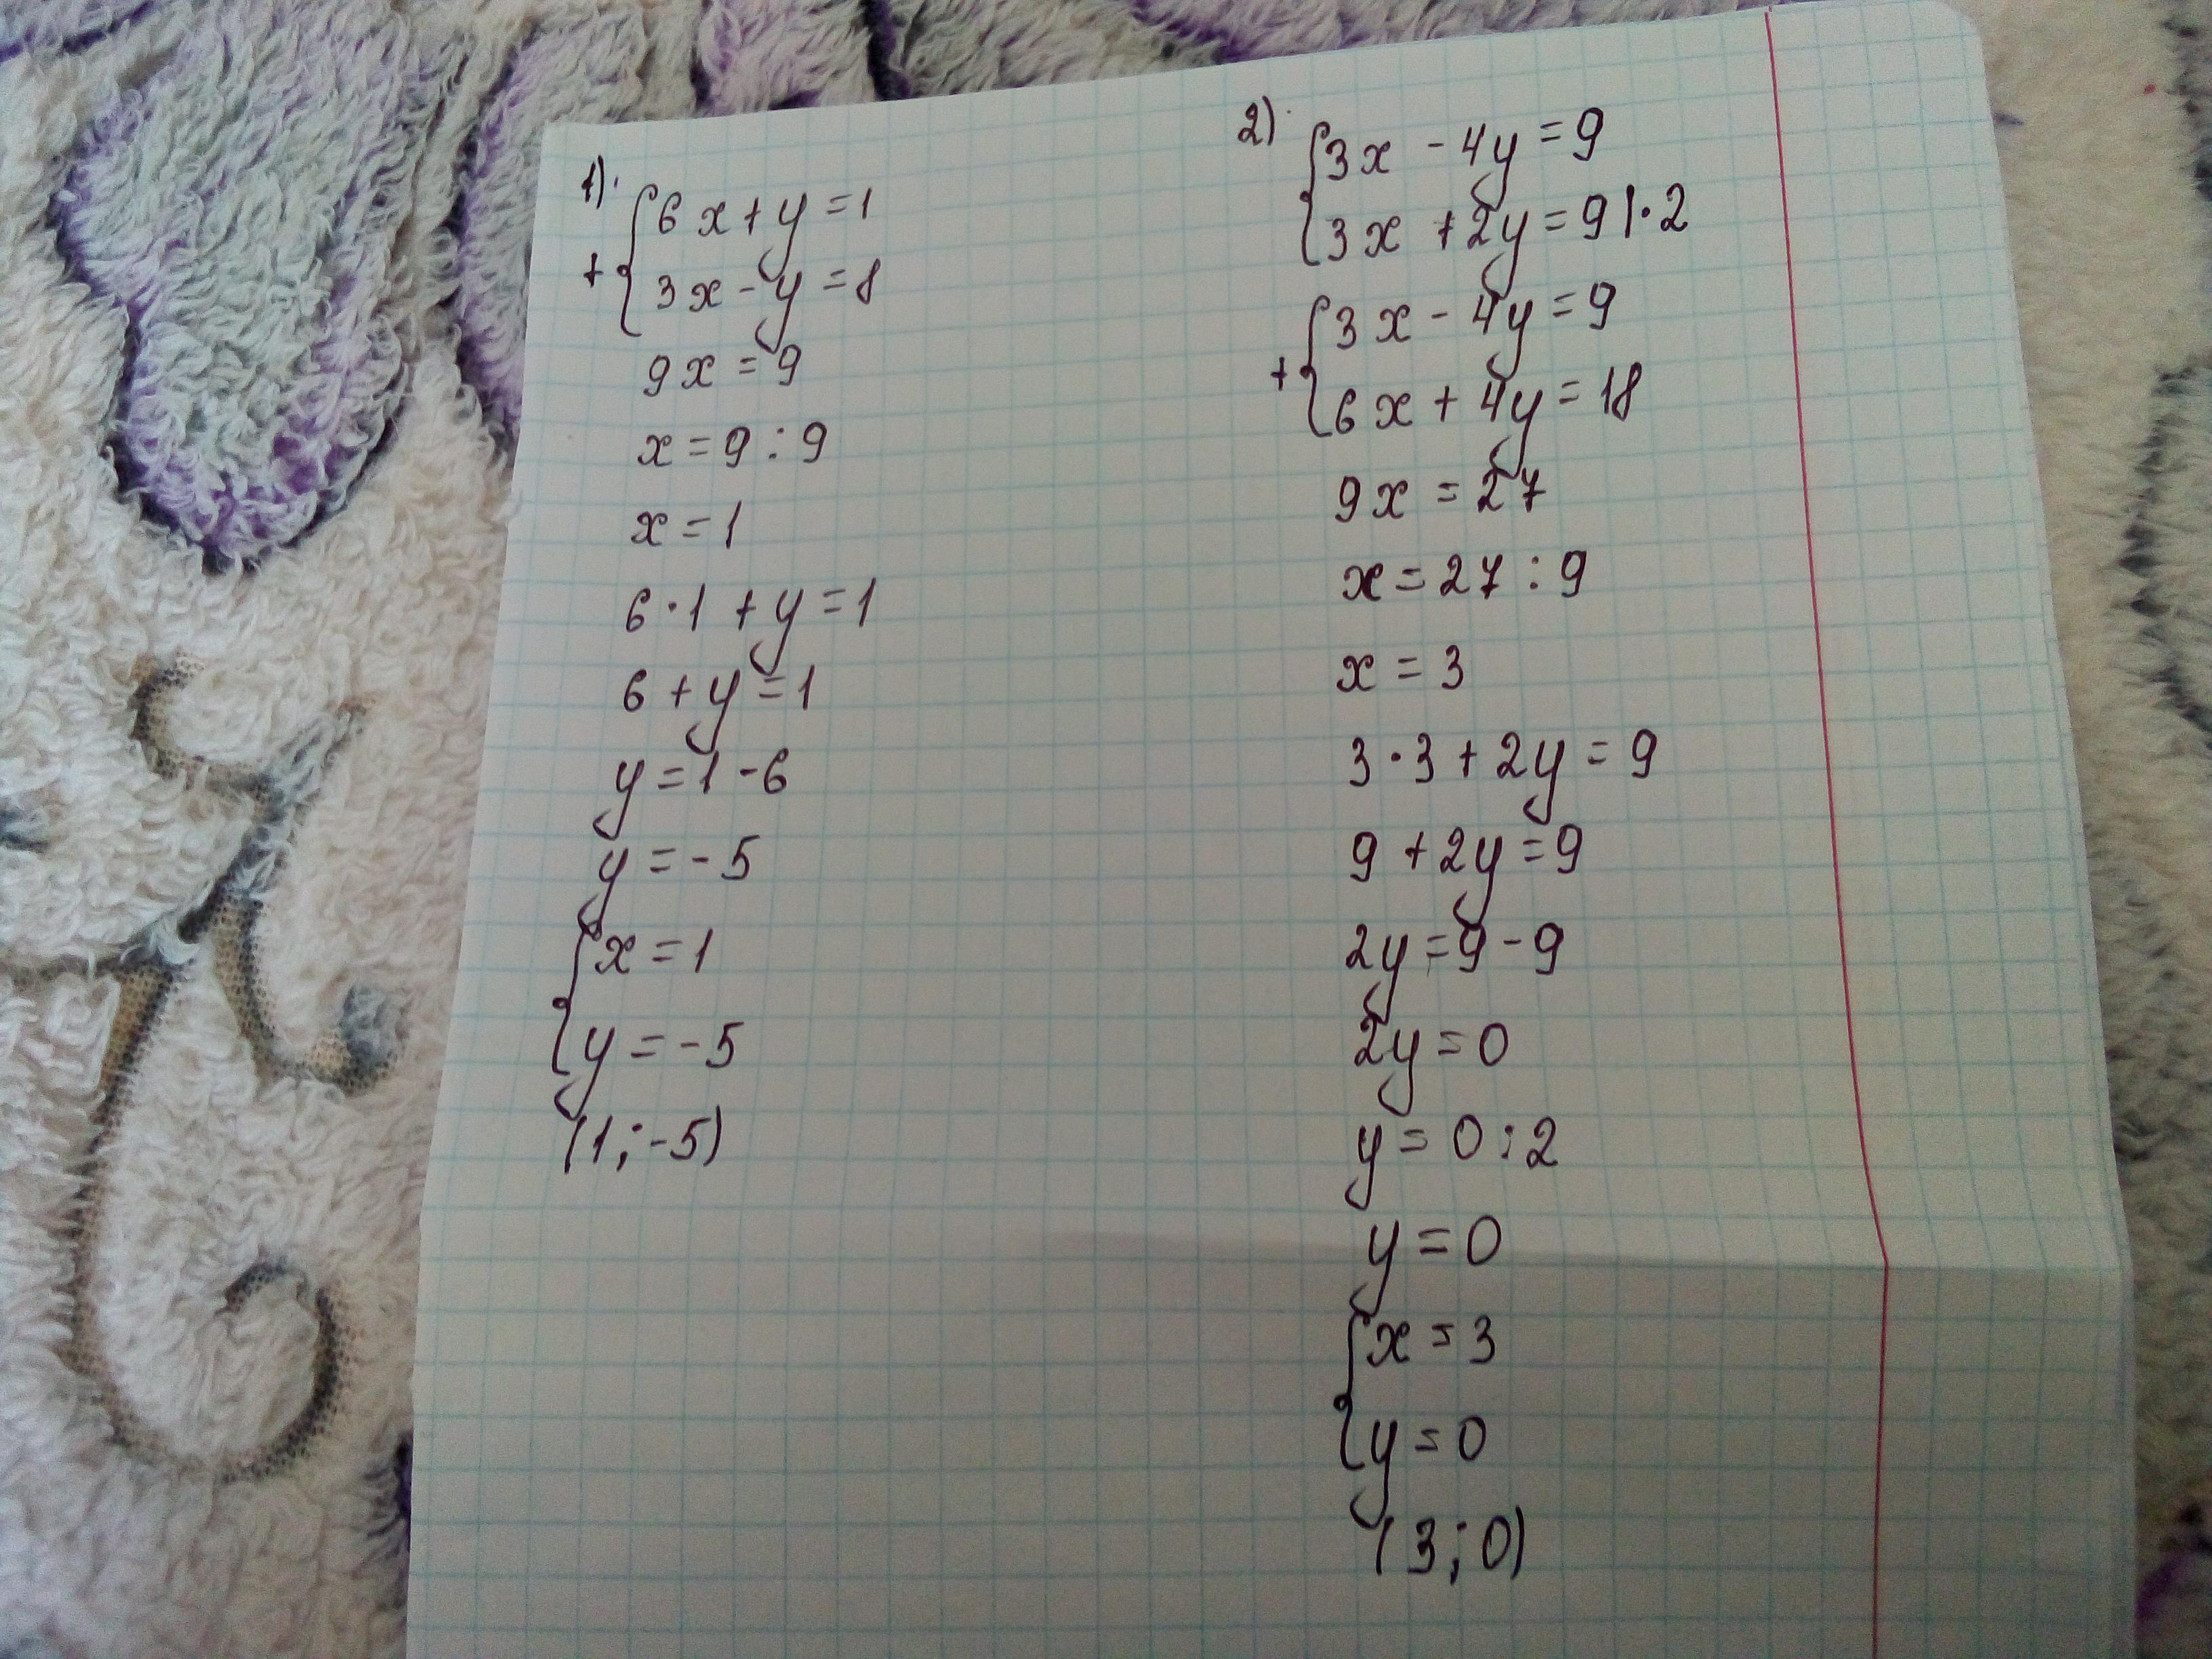 1).
{6x+y=1
+
3x-y=8
9x=9
x=9:9
x=1
6·1+y=1
6+y=1
y=1-6
y=-5
{x=1
y=-5
(1;-5)
2).
{3x-4y=9
3x+2y=9|·2
{3x-4y=9
+
6x+4y=18
9x=27
x=27:9
x=3
3·3+2y=9
9+2y=9
2y=9-9
2y=0
y=0:2
y=0
{x=3
y=0
(3;0)